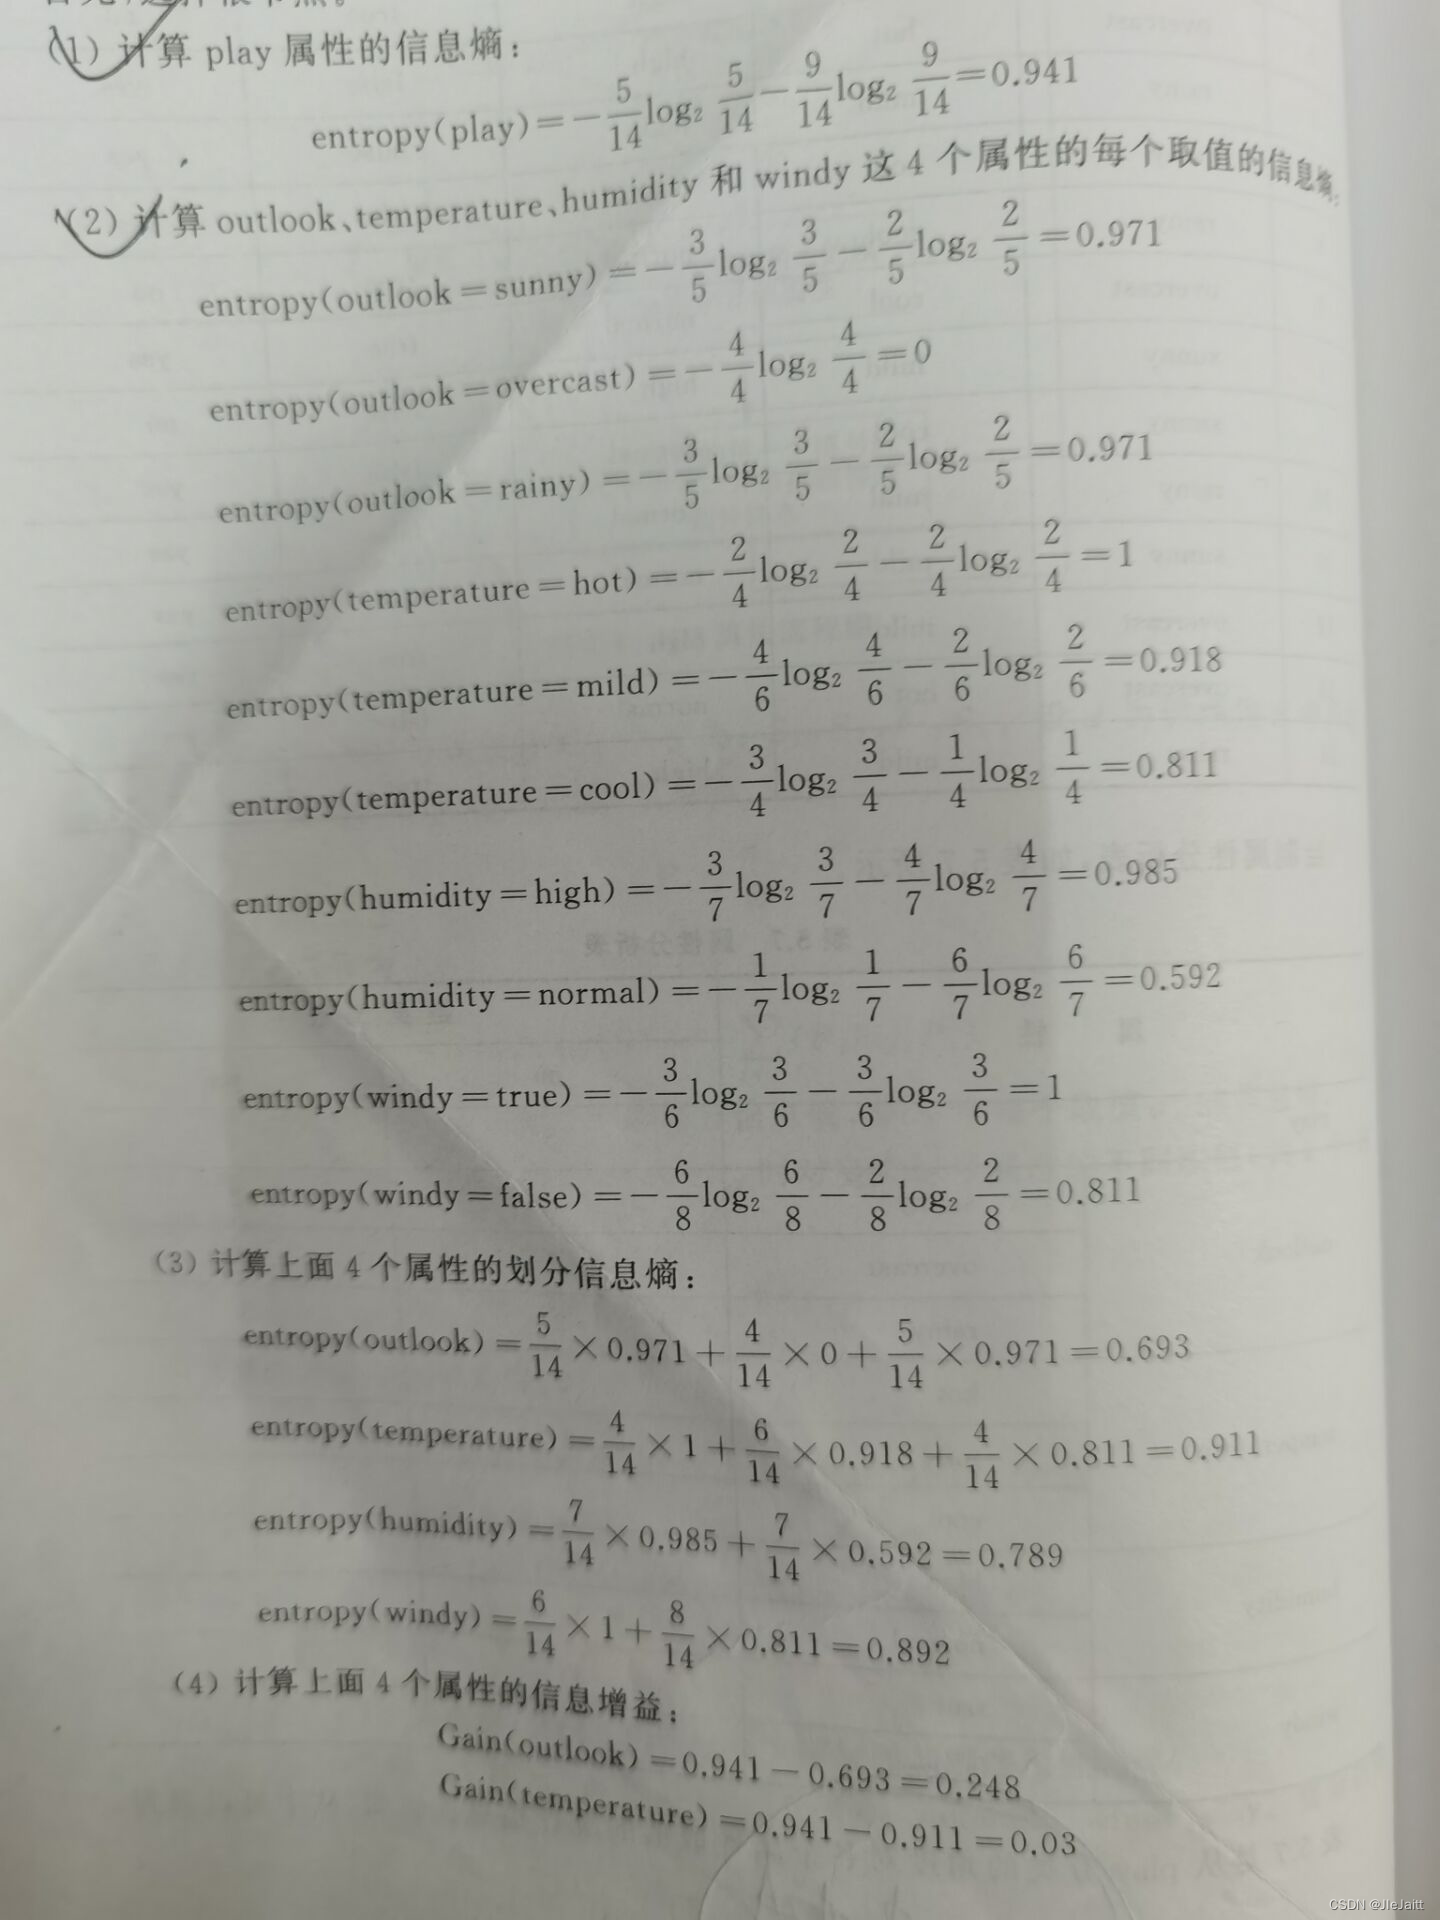 (1) 计算 play 属性的信息熵：
entropy(play)=-5/14 log₂ 5/14 - 9/14 log₂ 9/14=0.941
(2) 计算 outlook、temperature、humidity 和 windy 这 4 个属性的每个取值的信息熵：
entropy(outlook=sunny)=-3/5 log₂ 3/5 - 2/5 log₂ 2/5=0.971
entropy(outlook=overcast)=-4/4 log₂ 4/4=0
entropy(outlook=rainy)=-3/5 log₂ 3/5 - 2/5 log₂ 2/5=0.971
entropy(temperature=hot)=-2/4 log₂ 2/4 - 2/4 log₂ 2/4=1
entropy(temperature=mild)=-4/6 log₂ 4/6 - 2/6 log₂ 2/6=0.918
entropy(temperature=cool)=-3/4 log₂ 3/4 - 1/4 log₂ 1/4=0.811
entropy(humidity=high)=-3/7 log₂ 3/7 - 4/7 log₂ 4/7=0.985
entropy(humidity=normal)=-1/7 log₂ 1/7 - 6/7 log₂ 6/7=0.592
entropy(windy=true)=-3/6 log₂ 3/6 - 3/6 log₂ 3/6=1
entropy(windy=false)=-6/8 log₂ 6/8 - 2/8 log₂ 2/8=0.811
(3) 计算上面 4 个属性的划分信息熵：
entropy(outlook)=5/14×0.971+4/14×0+5/14×0.971=0.693
entropy(temperature)=4/14×1+6/14×0.918+4/14×0.811=0.911
entropy(humidity)=7/14×0.985+7/14×0.592=0.789
entropy(windy)=6/14×1+8/14×0.811=0.892
(4) 计算上面 4 个属性的信息增益：
Gain(outlook)=0.941-0.693=0.248
Gain(temperature)=0.941-0.911=0.03
CSDN @JIeJaitt